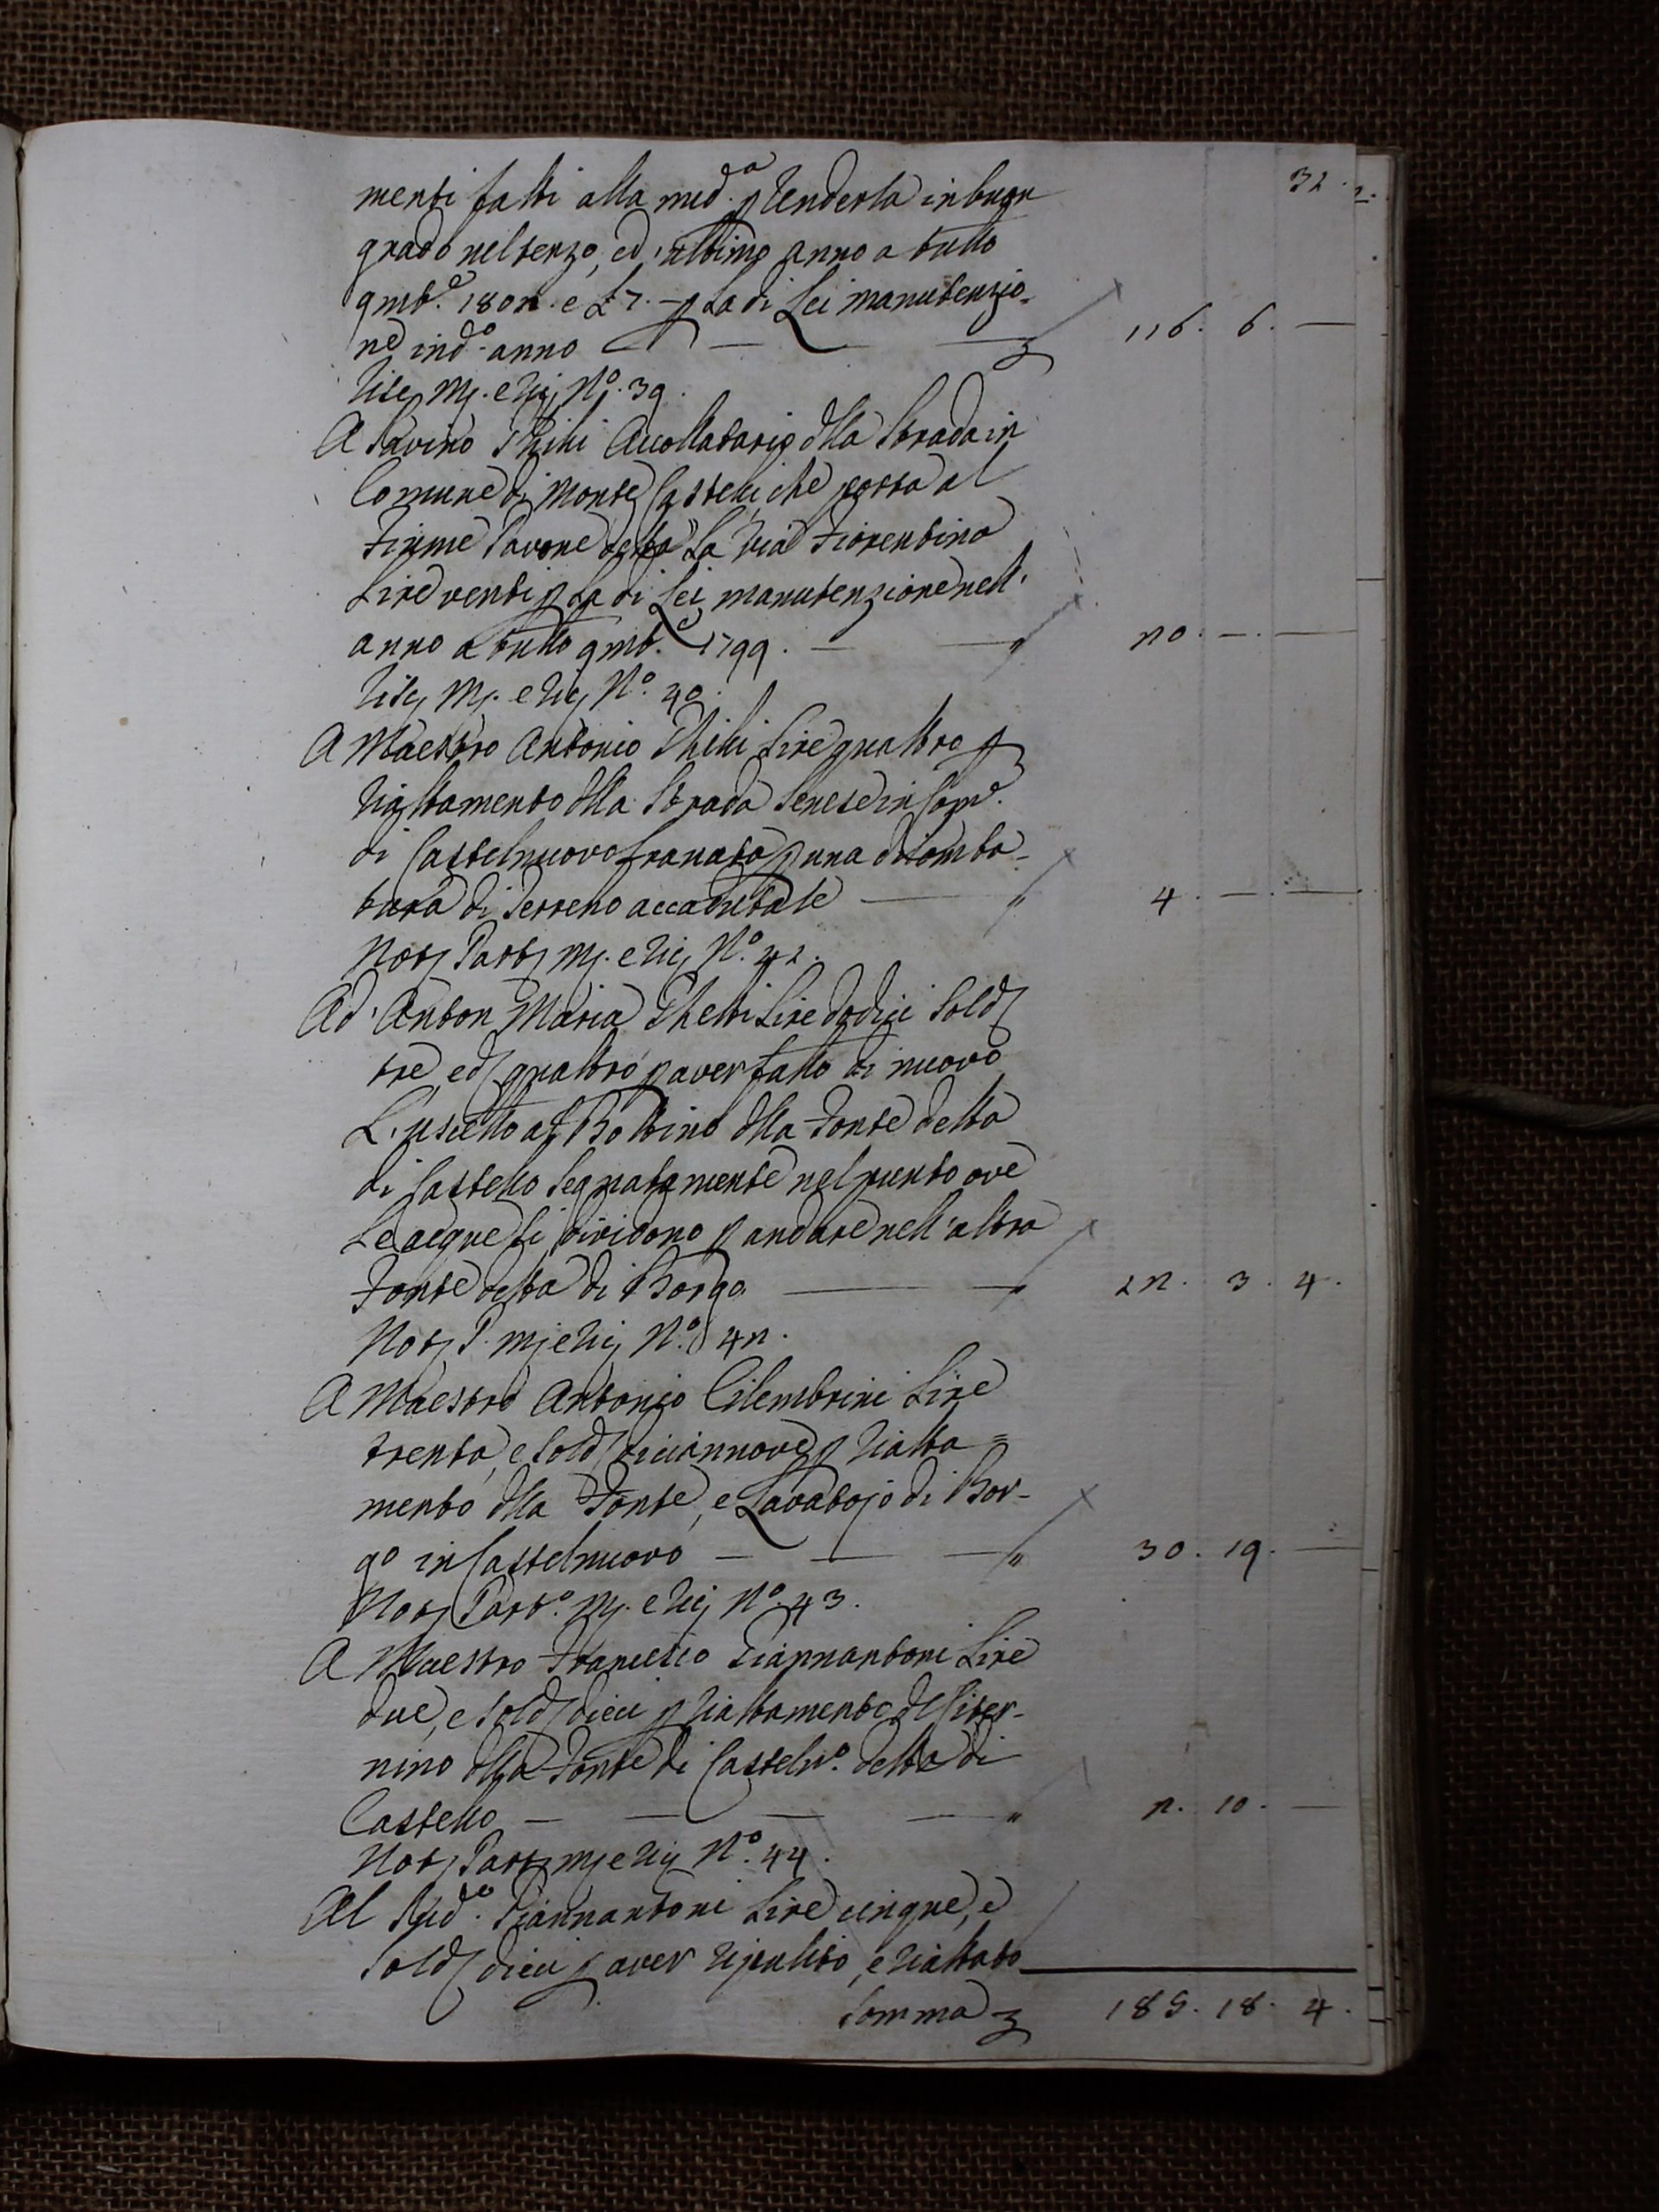 32.
menti fatti alla med.a p renderla in buon
grado nel terzo, ed ultimo anno a tutto
9mb.e 1802. e £ 7. - p la di Lei manutenzio-
ne in d.o anno 116. 6. —
N.o 39.
A Savino Ghilli Accollatario dlla Strada in
Comune di Monte Castelli che porta al
Fiume Pavone detta la Via Fiorentina
Lire venti p la di Lei manutenzione nell'
anno a tutto 9mb.e 1799. — " 20. — . —
N.o 40.
A Maestro Antonio Ghilli Lire quattro p
riattamento dlla Strada Senese in Com.e
di Castelnuovo franata p una
di Terreno — " 4. — . —
N.o 41.
Ad' Anton Maria Lire dodici Sold
tre, e d quattro p aver fatto di nuovo
L'uscetto al Bottino dlla Fonte detta
di Castello segnatamente nel punto ove
Le acque si dividono p andare nell'altra
Fonte detta di Borgo — " 12. 3. 4.
N.o 42.
A Maestro Antonio Cilembrini Lire
trenta, e Sold diciannove p riatta=
mento dlla Fonte, e Lavatojo di Bor-
go in Castelnuovo — — — " 30. 19. —
N.o 43.
A Maestro Francesco Giannantoni Lire
due, e Sold dieci p riattamento del Citer-
nino dlla Fonte di Casteln.o detta di
Castello — — — — " 2. 10. —
N.o 44.
Al Sud.o Giannantoni Lire cinque, e
Sold dieci p aver ripulito, e riattato
Somma 185. 18. 4.